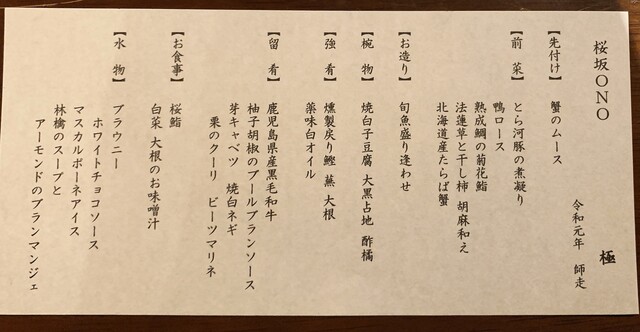 桜坂ONO
極
令和元年 師走
【先付け】 蟹のムース
【前 菜】 とら河豚の煮凝り
鴨ロース
熟成鯛の菊花鮨
法蓮草と干し柿 胡麻和え
北海道産たらば蟹
【お造り】 旬魚盛り逢わせ
【椀 物】 焼白子豆腐 大黒占地 酢橘
【強 肴】 燻製戻り鰹 蕪 大根
薬味白オイル
【留 肴】 鹿児島県産黒毛和牛
柚子胡椒のブールブランソース
芽キャベツ 焼白ネギ
栗のクーリ ビーツマリネ
【お食事】 桜鮨
白菜 大根のお味噌汁
【水 物】 ブラウニー
ホワイトチョコソース
マスカルポーネアイス
林檎のスープと
アーモンドのブランマンジェ